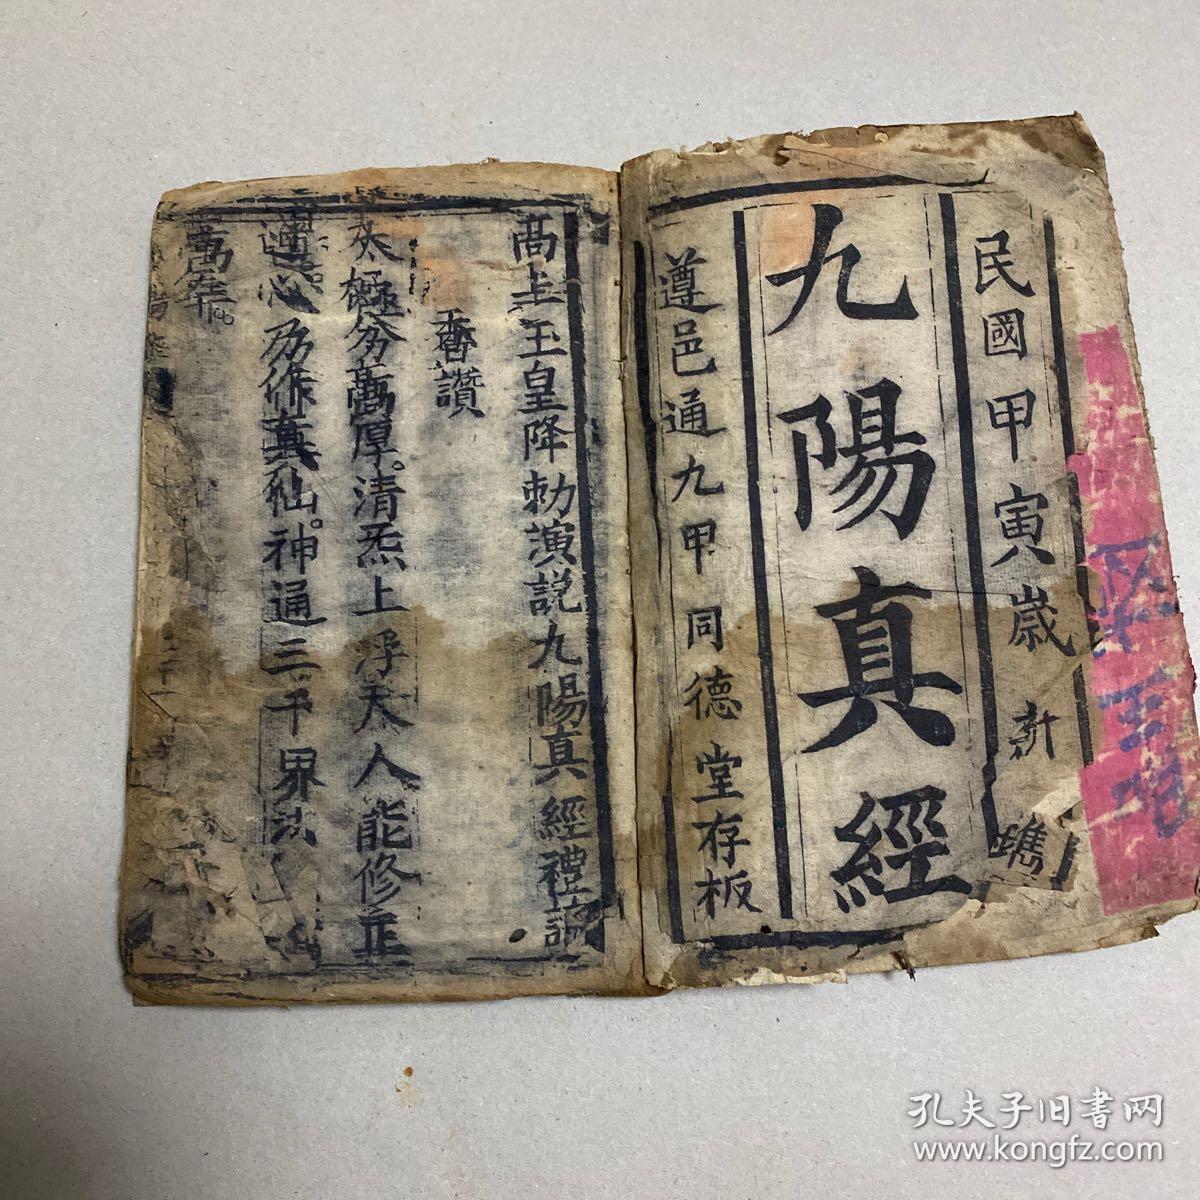 民國甲寅歲新鐫
九陽真經
遵邑通九甲同德堂存板
高上玉皇降勅演説九陽真經禮
香讚
太極分萬厚。清炁上浮天人能修正
心乃作真仙。神通三千界法
萬年。
孔夫子旧書网
www.kongfz.com